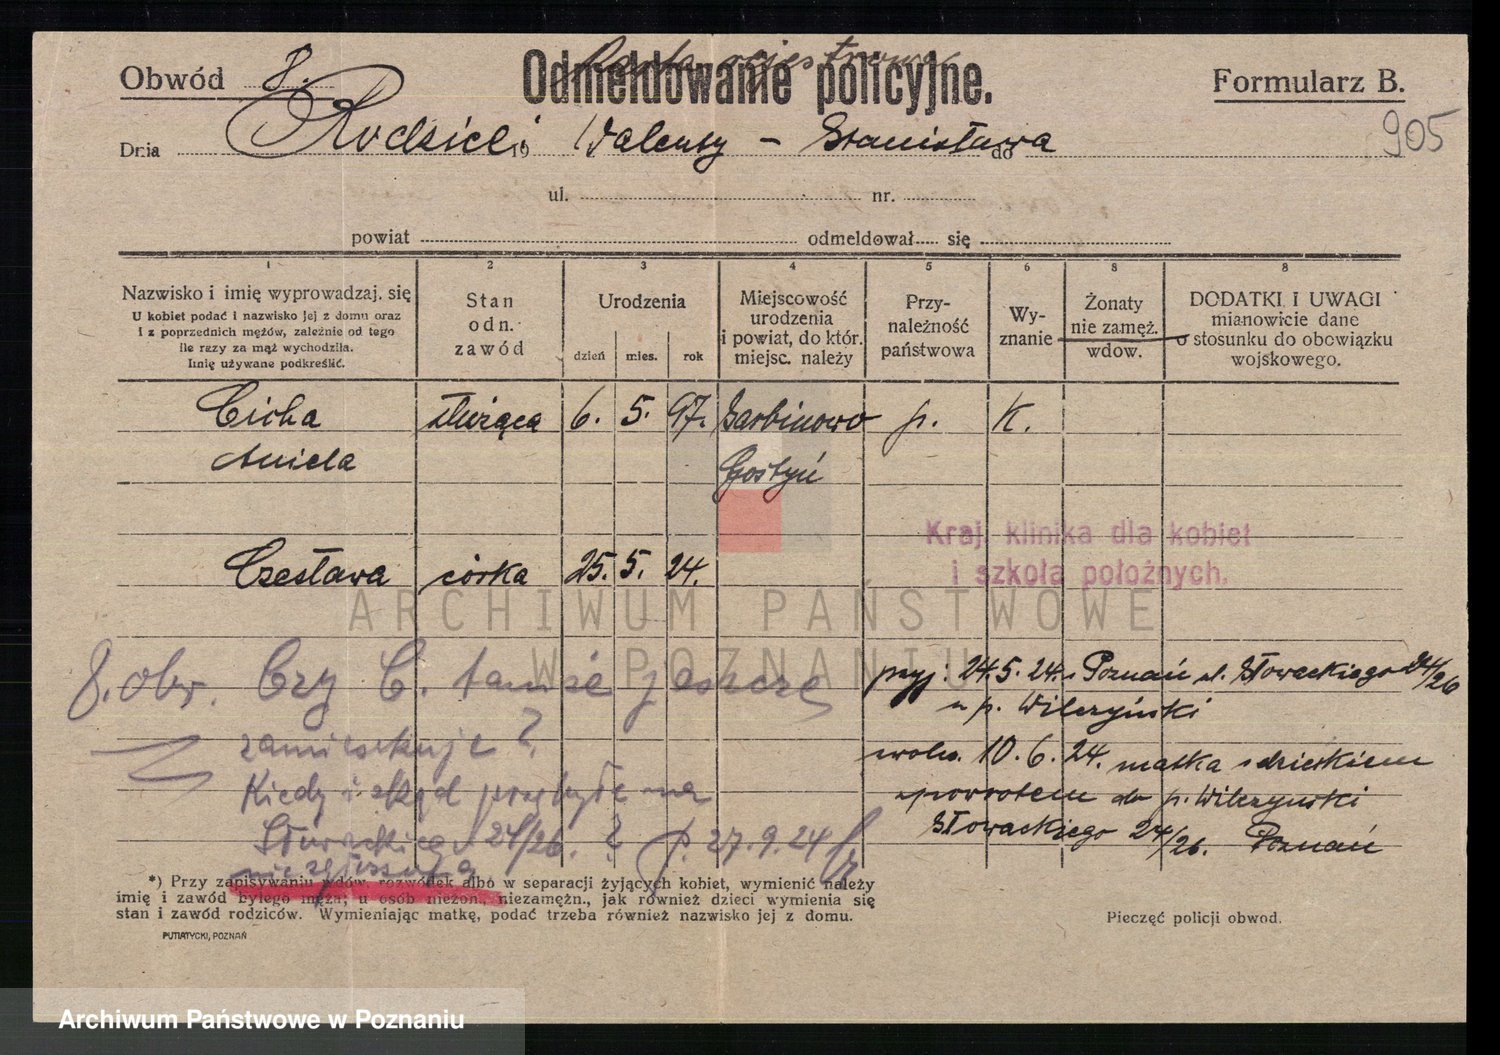 Karta rejestrowa
Obwód 8. Odmeldowanie policyjne. Formularz B.
905
Dnia Rodzice: 19 Walenty – Stanisława do
ul. nr.
powiat odmeldował się
1 2 3 4 5 6 8 8
Nazwisko i imię wyprowadzaj. się
U kobiet podać i nazwisko jej z domu oraz
i z poprzednich mężów, zależnie od tego
ile razy za mąż wychodziła.
Imię używane podkreślić.
Stan
odn.
zawód
Urodzenia
dzień mies. rok
Miejscowość
urodzenia
i powiat, do któr.
miejsc. należy
Przy-
należność
państwowa
Wy-
znanie
Żonaty
nie zamęż.
wdow.
DODATKI I UWAGI
mianowicie dane
o stosunku do obowiązku
wojskowego.
Cicha służąca 6. 5. 97. Garbinowo p. K.
Aniela Gostyń
Kraj. klinika dla kobiet
i szkoła położnych.
Czesława córka 25. 5. 24.
ARCHIWUM PAŃSTWOWE
W POZNANIU
przyj: 24.5.24. Poznań ul. Słowackiego 24/26
u p. Wilczyński
woln. 10.6.24. matka z dzieckiem
spowrotem do p. Wilczynski
Słowackiego 24/26. Poznań
8. obw. Czy C. tamże jeszcze
zamieszkuje?
Kiedy i skąd przybyła na
Słowackiego 24/26. ? P. 27.9.24
nie zgłoszona
*) Przy zapisywaniu wdów, rozwódek albo w separacji żyjących kobiet, wymienić należy
imię i zawód byłego męża; u osób nieżon., niezamężn., jak również dzieci wymienia się
stan i zawód rodziców. Wymieniając matkę, podać trzeba również nazwisko jej z domu.
PUTIATYCKI, POZNAŃ
Pieczęć policji obwod.
Archiwum Państwowe w Poznaniu